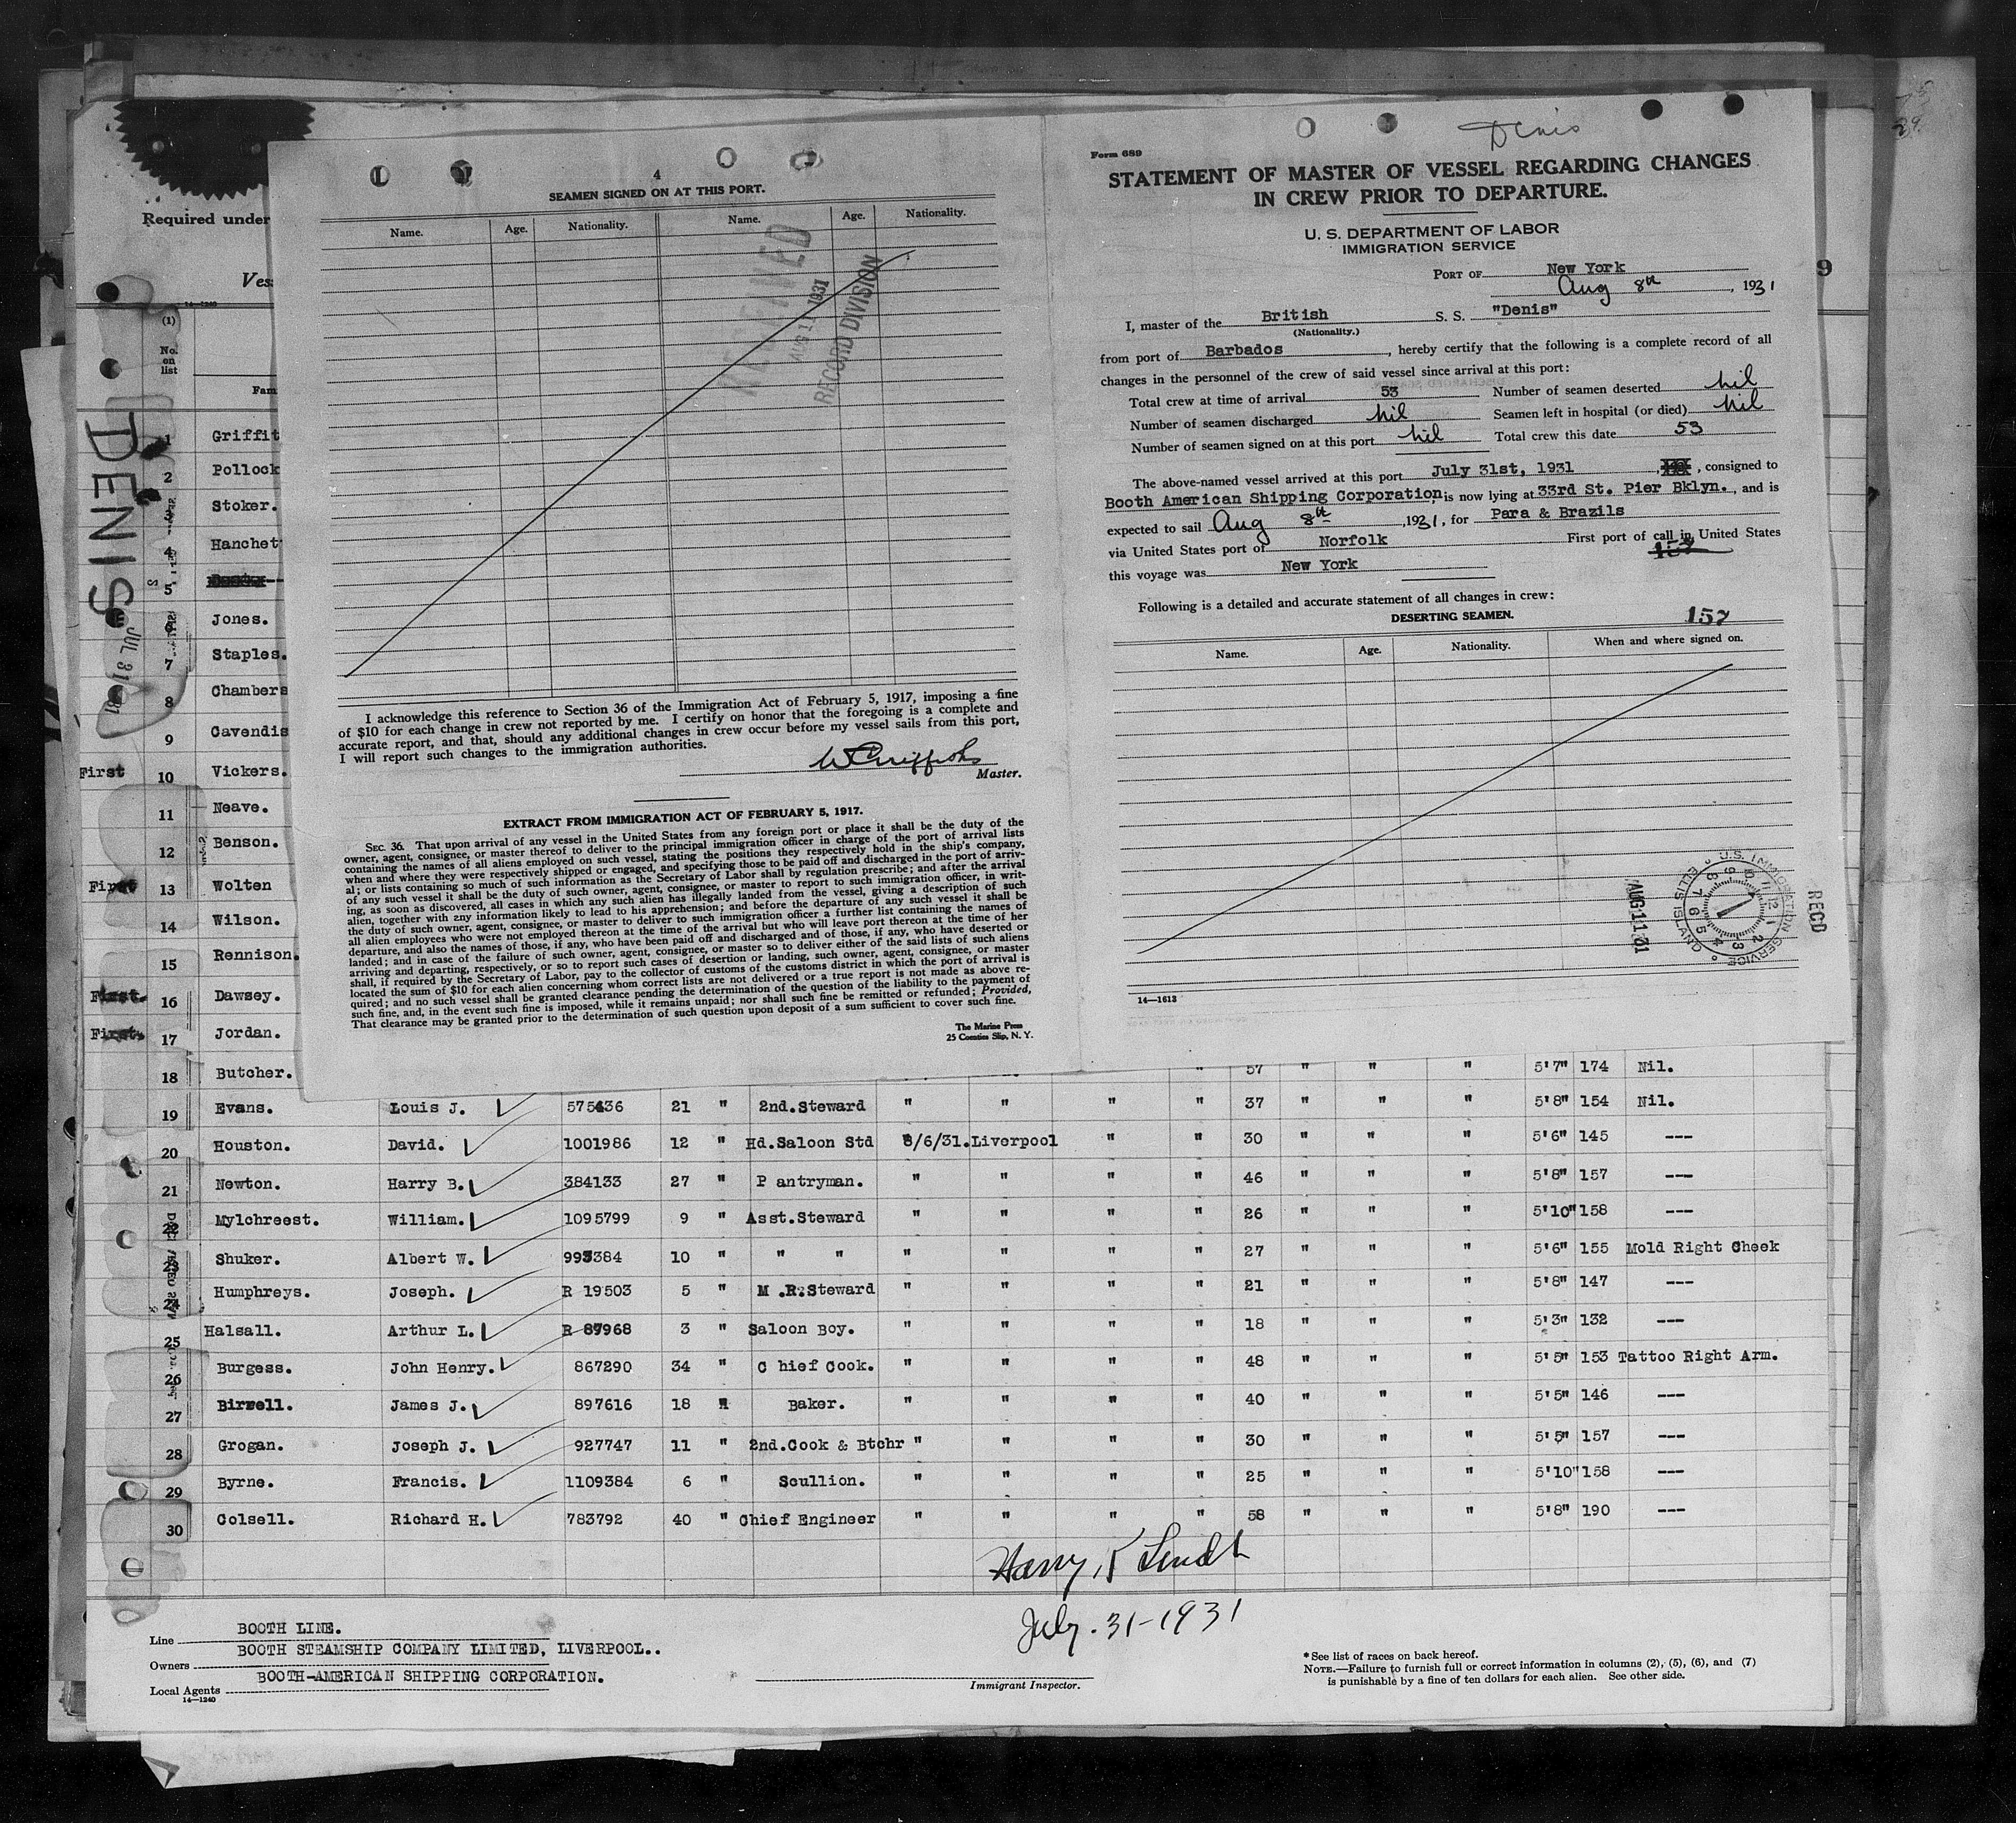 Required under
Ves
14—1240
(1)
No.
on
list
Fam
DENIS
JUL 31
1 Griffit
2 Pollock
Stoker.
4 Hanchet
5
Jones.
7 Staples.
8 Chambers
9 Cavendis
First 10 Vickers.
11 Neave.
12 Benson.
First 13 Wolten
14 Wilson.
15 Rennison.
First. 16 Dawsey.
First. 17 Jordan.
4
SEAMEN SIGNED ON AT THIS PORT.
Name. Age. Nationality. Name. Age. Nationality.
RECEIVED
AUG 11 1931
RECORD DIVISION
I acknowledge this reference to Section 36 of the Immigration Act of February 5, 1917, imposing a fine
of $10 for each change in crew not reported by me. I certify on honor that the foregoing is a complete and
accurate report, and that, should any additional changes in crew occur before my vessel sails from this port,
I will report such changes to the immigration authorities.
Master.
EXTRACT FROM IMMIGRATION ACT OF FEBRUARY 5, 1917.
SEC. 36. That upon arrival of any vessel in the United States from any foreign port or place it shall be the duty of the
owner, agent, consignee, or master thereof to deliver to the principal immigration officer in charge of the port of arrival lists
containing the names of all aliens employed on such vessel, stating the positions they respectively hold in the ship's company,
when and where they were respectively shipped or engaged, and specifying those to be paid off and discharged in the port of arriv-
al; or lists containing so much of such information as the Secretary of Labor shall by regulation prescribe; and after the arrival
of any such vessel it shall be the duty of such owner, agent, consignee, or master to report to such immigration officer, in writ-
ing, as soon as discovered, all cases in which any such alien has illegally landed from the vessel, giving a description of such
alien, together with any information likely to lead to his apprehension; and before the departure of any such vessel it shall be
the duty of such owner, agent, consignee, or master to deliver to such immigration officer a further list containing the names of
all alien employees who were not employed thereon at the time of the arrival but who will leave port thereon at the time of her
departure, and also the names of those, if any, who have been paid off and discharged and of those, if any, who have deserted or
landed; and in case of the failure of such owner, agent, consignee, or master so to deliver either of the said lists of such aliens
arriving and departing, respectively, or so to report such cases of desertion or landing, such owner, agent, consignee, or master
shall, if required by the Secretary of Labor, pay to the collector of customs of the customs district in which the port of arrival is
located the sum of $10 for each alien concerning whom correct lists are not delivered or a true report is not made as above re-
quired; and no such vessel shall be granted clearance pending the determination of the question of the liability to the payment of
such fine, and, in the event such fine is imposed, while it remains unpaid; nor shall such fine be remitted or refunded; Provided,
That clearance may be granted prior to the determination of such question upon deposit of a sum sufficient to cover such fine.
The Marine Press
25 Coenties Slip, N. Y.
Denis
Form 689
STATEMENT OF MASTER OF VESSEL REGARDING CHANGES
IN CREW PRIOR TO DEPARTURE.
U. S. DEPARTMENT OF LABOR
IMMIGRATION SERVICE
PORT OF New York
Aug 8th, 1931
I, master of the British S. S. "Denis"
(Nationality.)
from port of Barbados, hereby certify that the following is a complete record of all
changes in the personnel of the crew of said vessel since arrival at this port:
Total crew at time of arrival 53 Number of seamen deserted nil
Number of seamen discharged nil Seamen left in hospital (or died) nil
Number of seamen signed on at this port nil Total crew this date 53
The above-named vessel arrived at this port July 31st, 1931, consigned to
Booth American Shipping Corporation, is now lying at 33rd St. Pier Bklyn., and is
expected to sail Aug 8th, 1931, for Para & Brazils
via United States port of Norfolk First port of call in United States
this voyage was New York
157
Following is a detailed and accurate statement of all changes in crew:
DESERTING SEAMEN. 157
Name. Age. Nationality. When and where signed on.
AUG 11 31
U.S. IMMIGRATION SERVICE
ELLIS ISLAND
12 1 2 3 4 5 6 7 8 9 10 11
RECD
14—1613
9
18 Butcher. 57 " " " 5'7" 174 Nil.
19 Evans. Louis J. 575436 21 " 2nd.Steward " " " " 37 " " " 5'8" 154 Nil.
20 Houston. David. 1001986 12 " Hd.Saloon Std 8/6/31.Liverpool " " 30 " " " 5'6" 145 ---
21 Newton. Harry B. 384133 27 " P antryman. " " " " 46 " " " 5'8" 157 ---
22 Mylchreest. William. 1095799 9 " Asst.Steward " " " " 26 " " " 5'10" 158 ---
23 Shuker. Albert W. 993384 10 " " " " " " " 27 " " " 5'6" 155 Mold Right Cheek
24 Humphreys. Joseph. R 19503 5 " M .R.Steward " " " " 21 " " " 5'8" 147 ---
25 Halsall. Arthur L. R 89968 3 " Saloon Boy. " " " " 18 " " " 5'3" 132 ---
26 Burgess. John Henry. 867290 34 " C hief Cook. " " " " 48 " " " 5'5" 153 Tattoo Right Arm.
27 Birrell. James J. 897616 18 " Baker. " " " " 40 " " " 5'5" 146 ---
28 Grogan. Joseph J. 927747 11 " 2nd.Cook & Btchr " " " " 30 " " " 5'5" 157 ---
29 Byrne. Francis. 1109384 6 " Scullion. " " " " 25 " " " 5'10" 158 ---
30 Colsell. Richard H. 783792 40 " Chief Engineer " " " " 58 " " " 5'8" 190 ---
July. 31-1931
Line BOOTH LINE.
Owners BOOTH STEAMSHIP COMPANY LIMITED, LIVERPOOL..
Local Agents BOOTH-AMERICAN SHIPPING CORPORATION.
14—1240
Immigrant Inspector.
* See list of races on back hereof.
NOTE.—Failure to furnish full or correct information in columns (2), (5), (6), and (7)
is punishable by a fine of ten dollars for each alien. See other side.